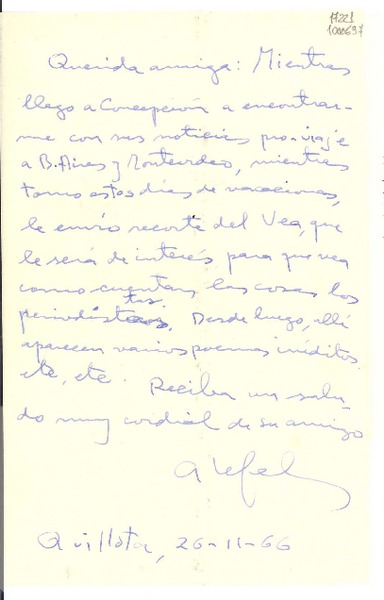 17221
1000637
Querida amiga: Mientras
llego a Concepción a encontrar-
me con sus noticias pro-viaje
a B. Aires y Montevideo, mientras
tomo estos días de vacaciones,
le envío recorte del Vea, que
le será de interés para que vea
como cuentan las cosas los
periodistas. Desde luego, allí
aparecen varios poemas inéditos.
etc, etc. Reciba un salu-
do muy cordial de su amigo
Quillota, 26-11-66